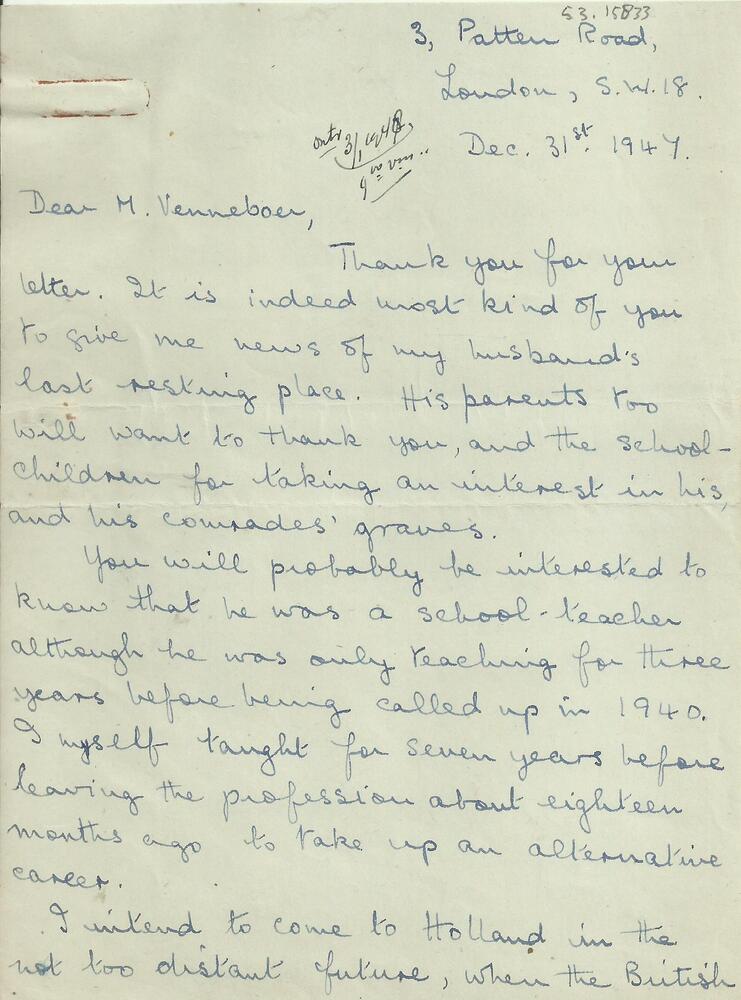 53.15833
3, Patten Road,
London, S.W.18.
Dec. 31st 1947.
Dear M. Venneboer,
Thank you for your
letter. It is indeed most kind of you
to give me news of my husband's
last resting place. His parents too
will want to thank you, and the school-
children for taking an interest in his,
and his comrades' graves.
You will probably be interested to
know that he was a school-teacher
although he was only teaching for three
years before being called up in 1940.
I myself taught for seven years before
leaving the profession about eighteen
months ago to take up an alternative
career.
I intend to come to Holland in the
not too distant future, when the British